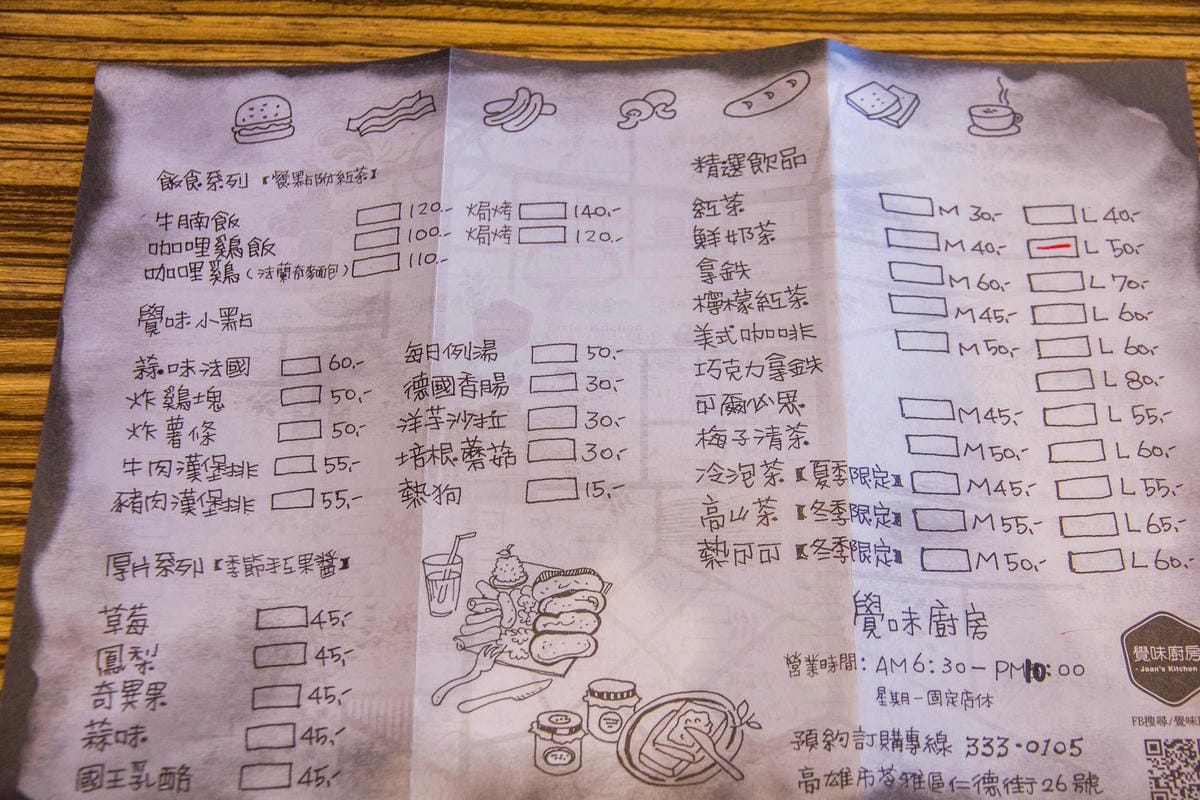 飯食系列【餐點附紅茶】
牛腩飯 120.- 焗烤 140.-
咖哩鷄飯 100.- 焗烤 120.-
咖哩鷄(法蘭奇麵包) 110.-
覺味小點
蒜味法國 60.-
炸鷄塊 50.-
炸薯條 50.-
牛肉漢堡排 55.-
豬肉漢堡排 55.-
每日例湯 50.-
德國香腸 30.-
洋芋沙拉 30.-
培根蘑菇 30.-
熱狗 15.-
厚片系列【季節手工果醬】
草莓 45.-
鳳梨 45.-
奇異果 45.-
蒜味 45.-
國王乳酪 45.-
精選飲品
紅茶 M 30.- L 40.-
鮮奶茶 M 40.- L 50.-
拿鉄 M 60.- L 70.-
檸檬紅茶 M 45.- L 60.-
美式咖啡 M 50.- L 60.-
巧克力拿鉄 L 80.-
可爾必思 M 45.- L 55.-
梅子清茶 M 50.- L 60.-
冷泡茶【夏季限定】 M 45.- L 55.-
高山茶【冬季限定】 M 55.- L 65.-
熱可可【冬季限定】 M 50.- L 60.-
覺味廚房
營業時間:AM6:30-PM10:00
星期一固定店休
預約訂購專線 333-0105
高雄市苓雅區仁德街26號
覺味廚房
Joan's Kitchen
FB搜尋/覺味